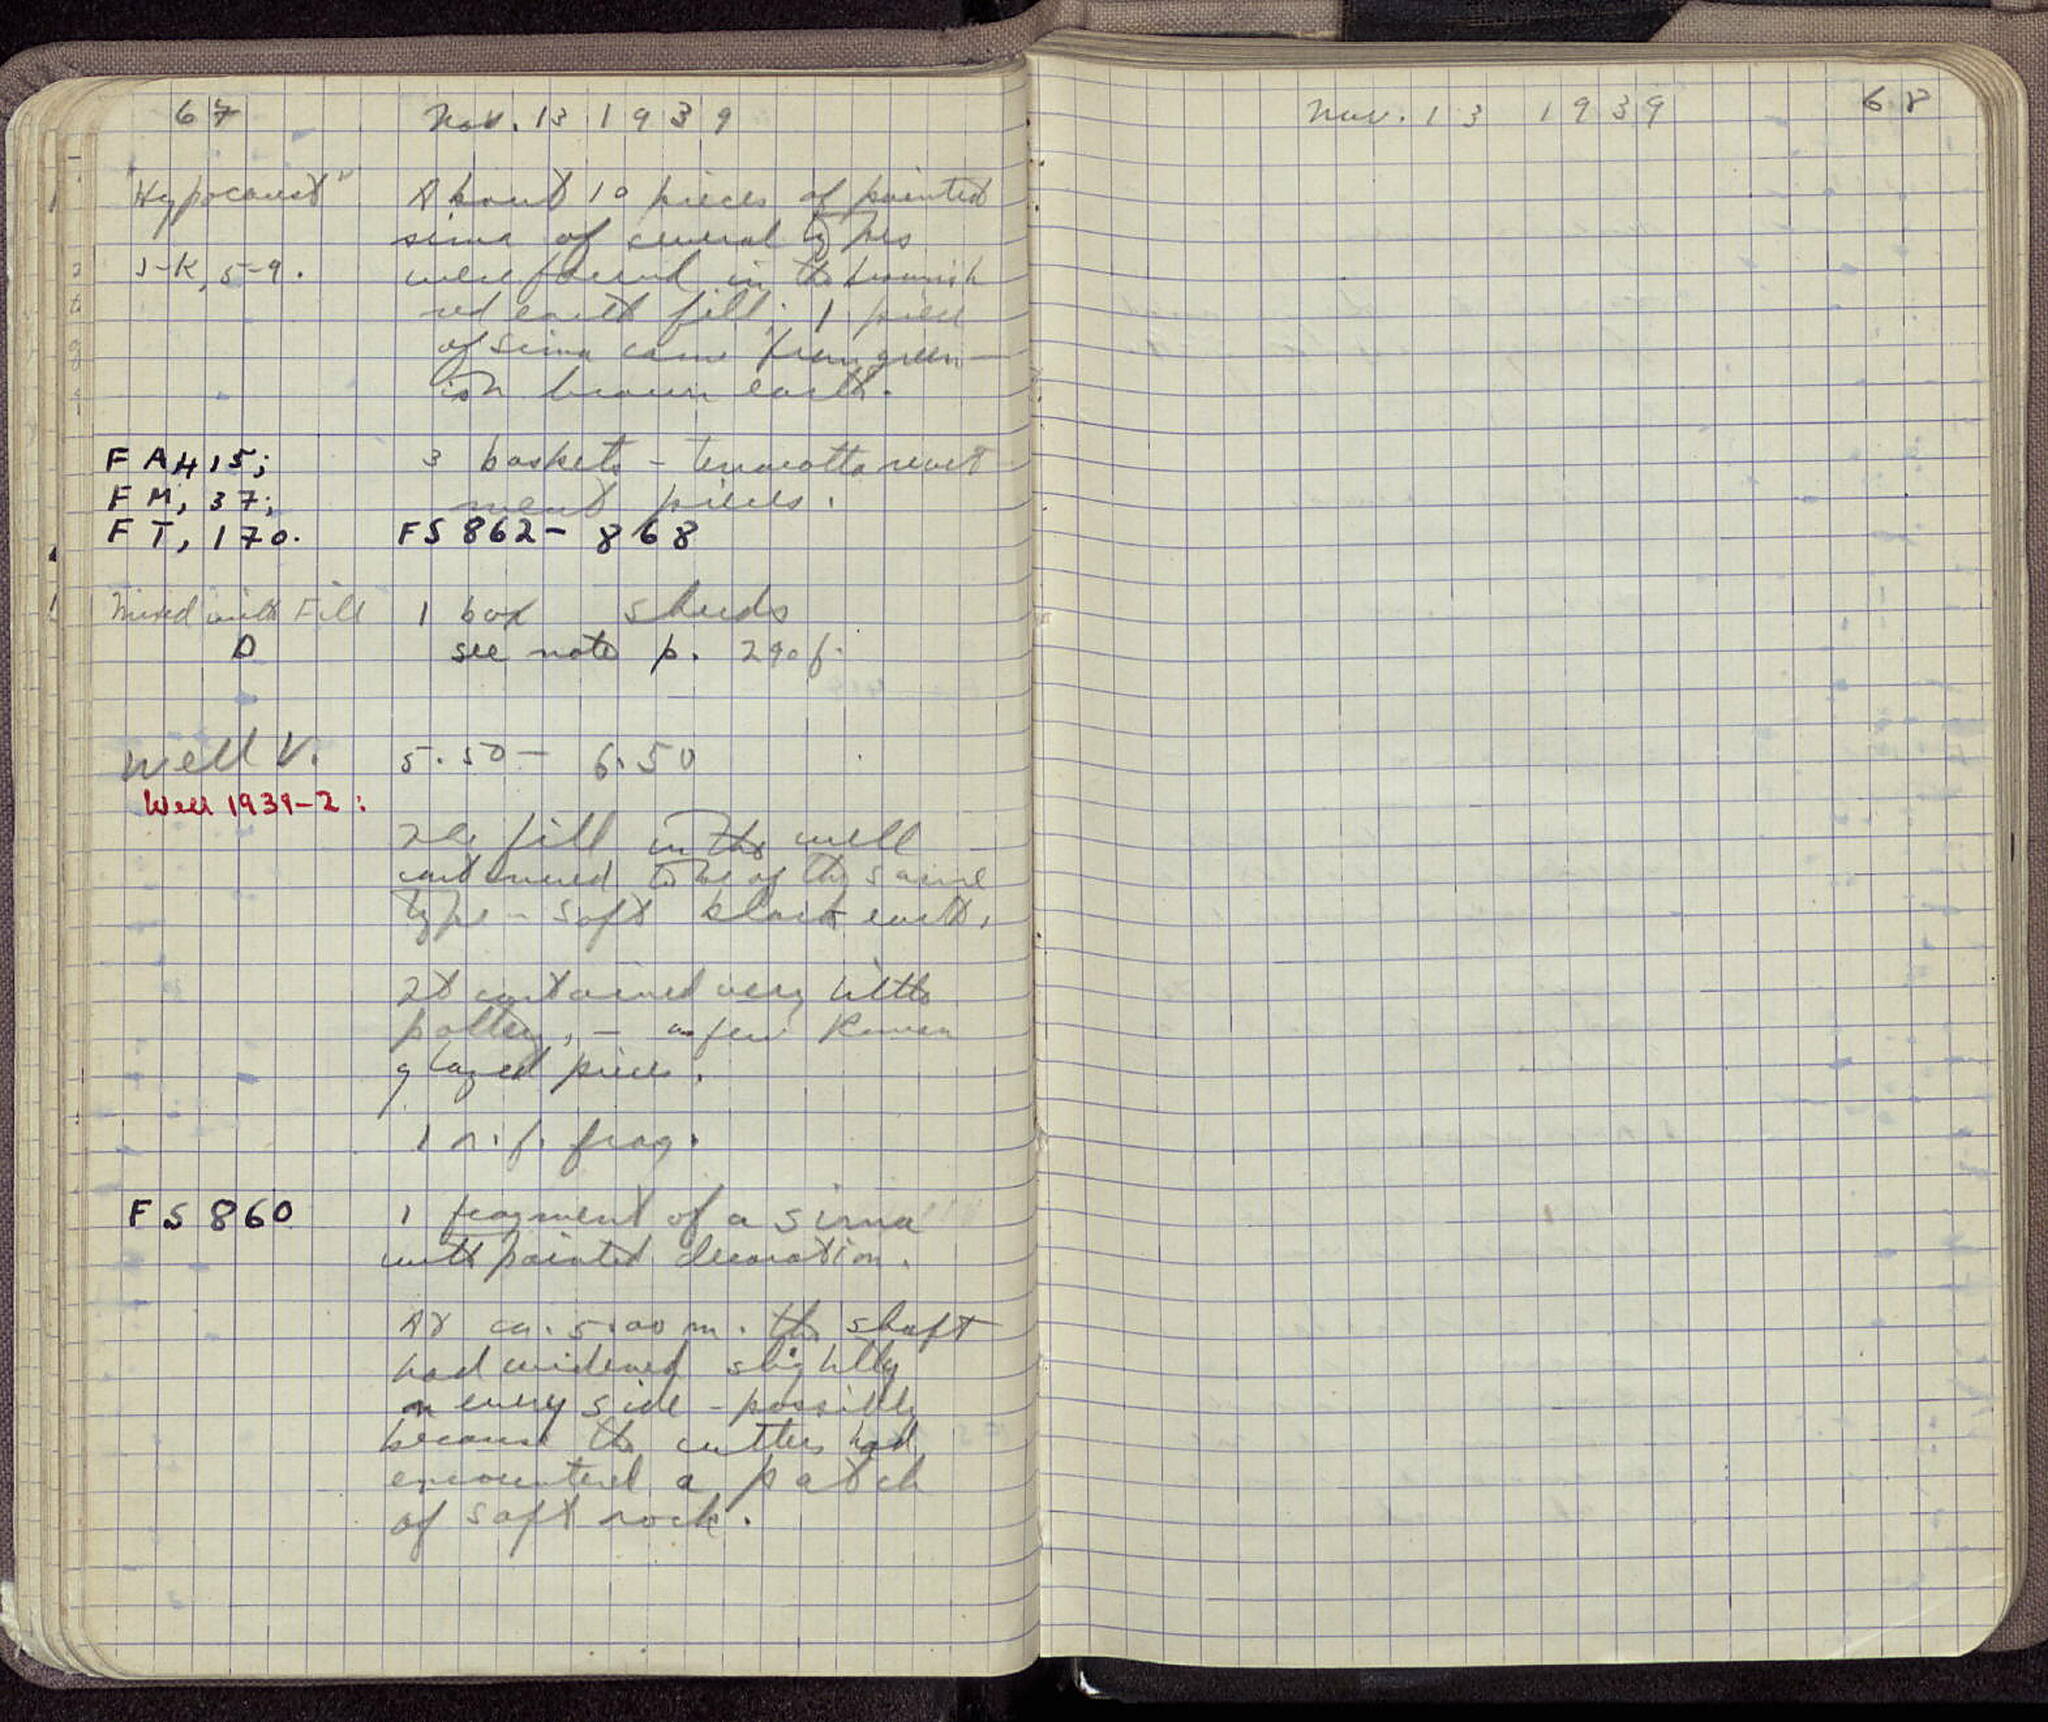 67 Nov. 13 1939
"Hypocaust" About 10 pieces of painted
sima of several types
J-K, 5-9. were found in the brownish
red earth fill; 1 piece
of sima came from green-
ish brown earth.
FA 415; 3 baskets - terracotta revet
FM, 37; ment pieces.
FT, 170. FS 862- 868
Mixed with Fill 1 box sherds
D see note p. 290 f.
Well V. 5.50 - 6.50
Well 1939-2:
The fill in the well
continued to be of the same
type - soft black earth.
It contained very little
pottery, - a few Roman
glazed pieces.
1 r.f. frag.
FS 860 1 fragment of a sima
with painted decoration.
At ca. 5.00 m. the shaft
had widened slightly
on every side - possibly
because the cutters had
encountered a patch
of soft rock.
Nov. 13 1939 68